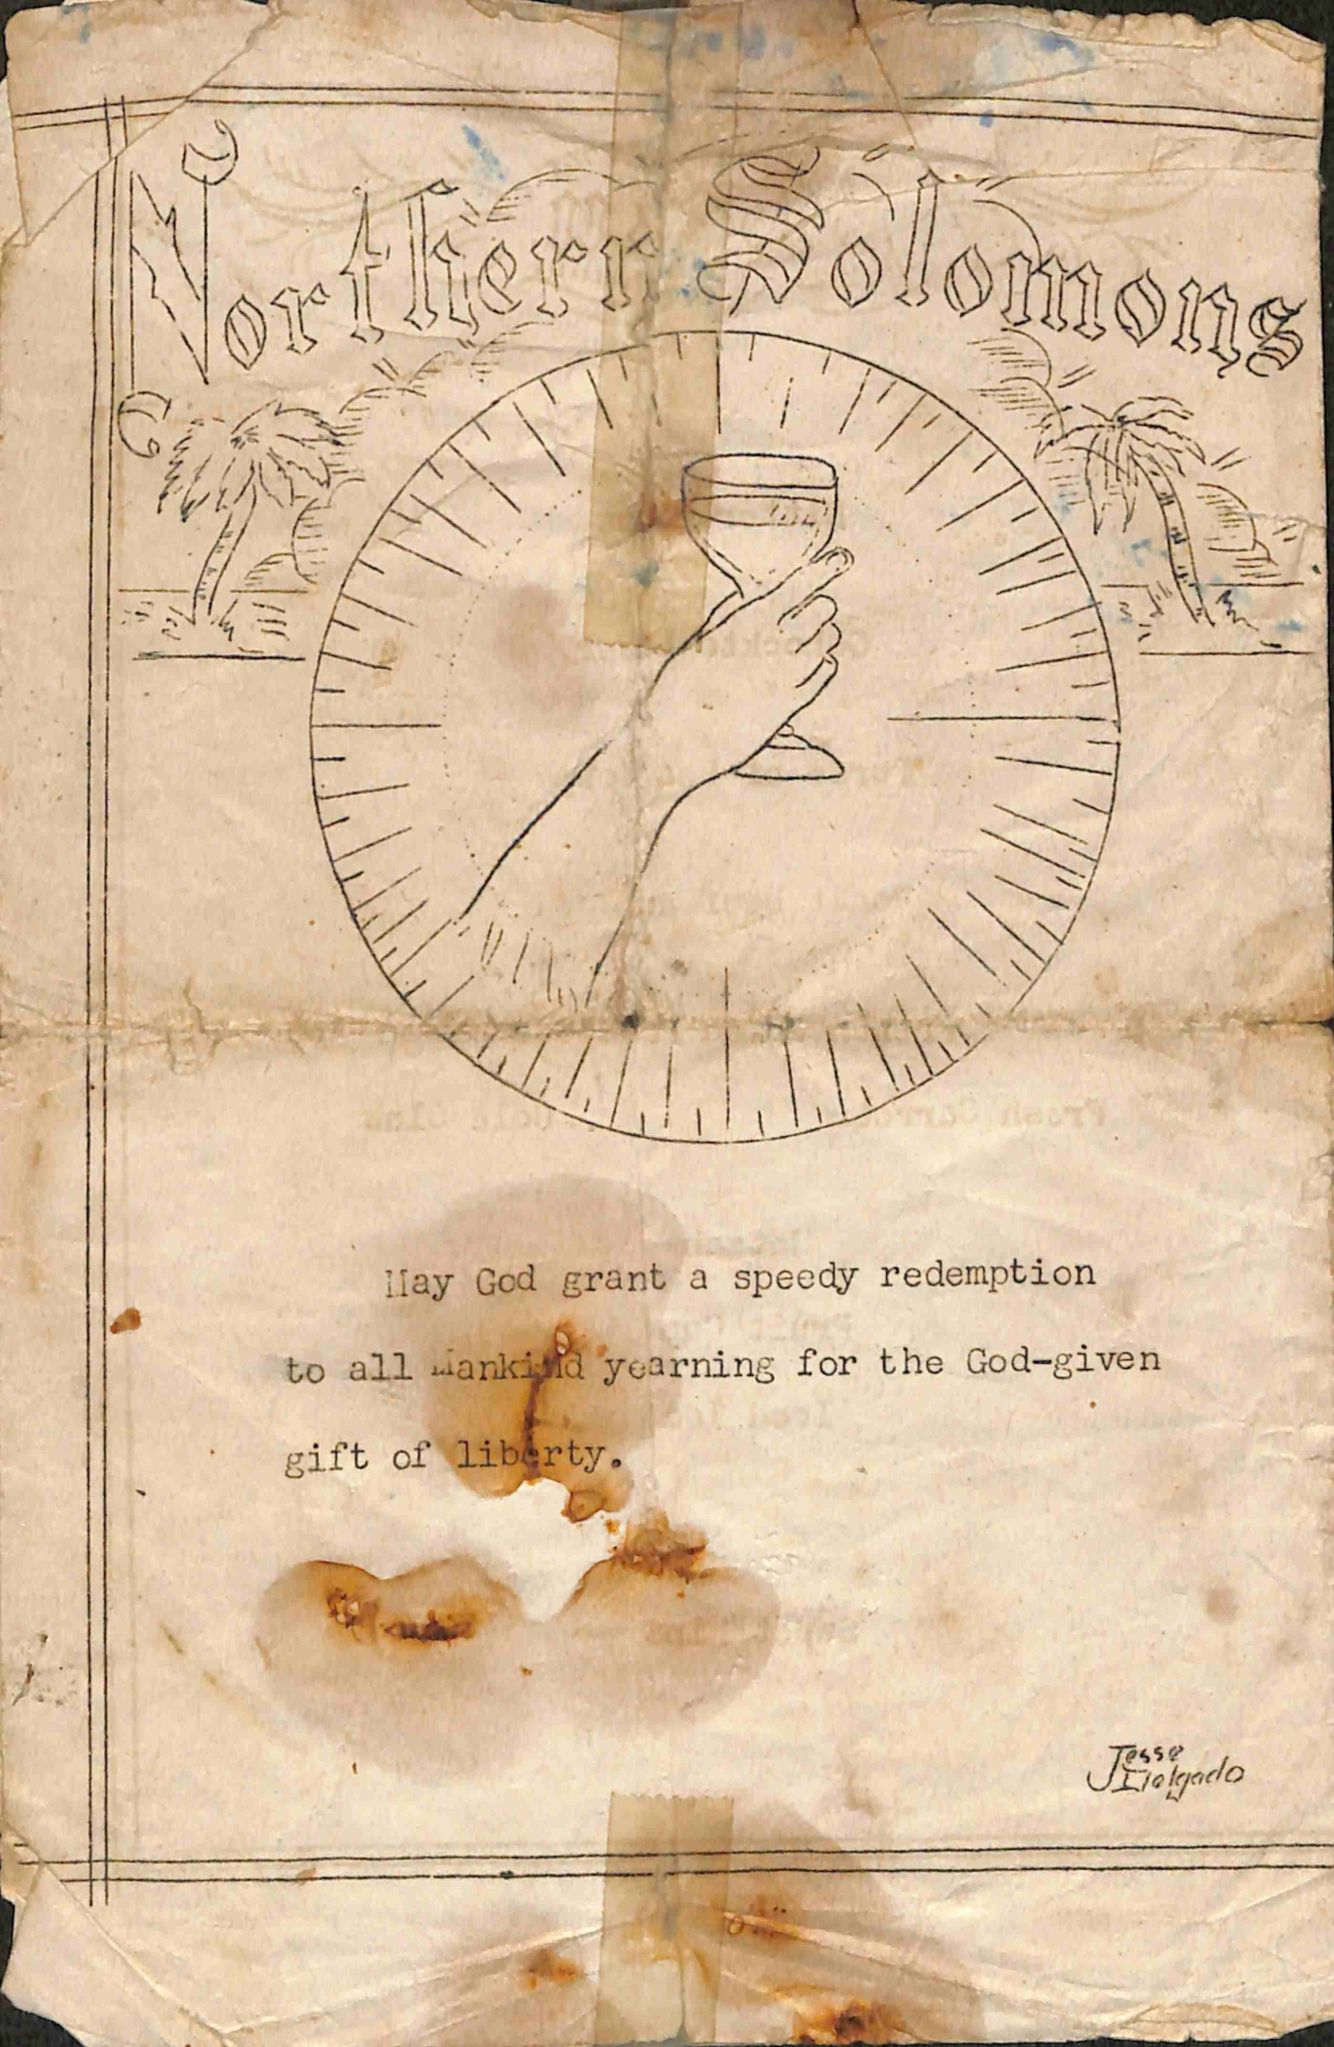 Northern Solomons
May God grant a speedy redemption
to all Mankind yearning for the God-given
gift of liberty.
Jesse
Delgado